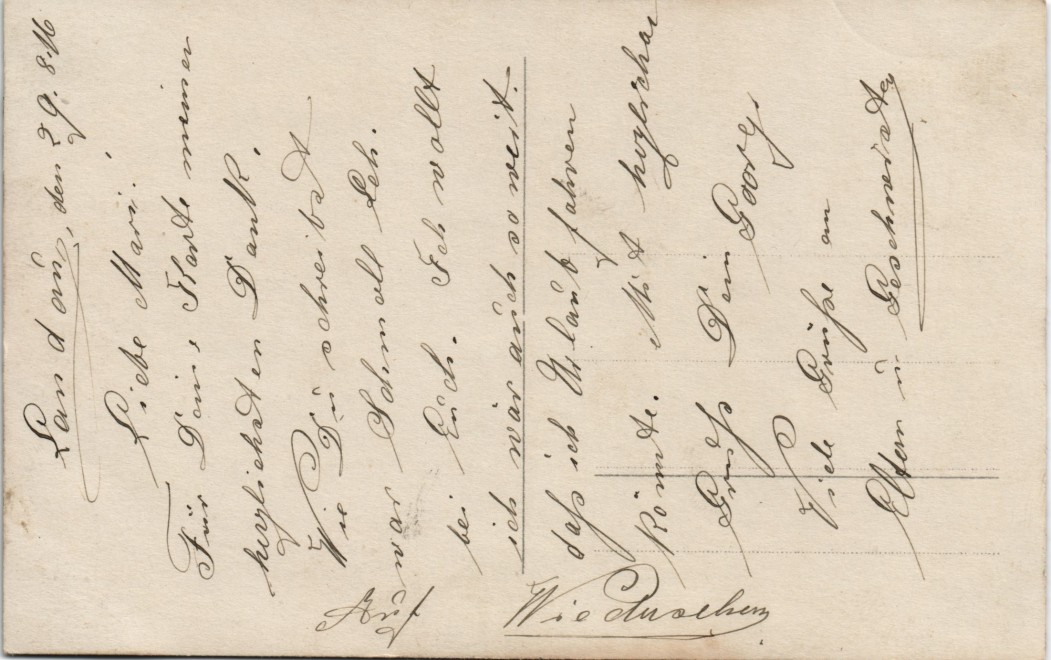 Landau, den 29. 8.16
Liebe Marie.
Für Deine Karte meinen
herzlichsten Dank.
Wie Du schreibst
war Schmoll Lch.
bei Euch. Ich wollt
ich wär auch so weit.
dass ich Urlaub fahren
könnte. Mit herzlichen
Gruß Dein Georg
Viele Grüße an
Eltern u Geschwister
Auf Wiedersehen